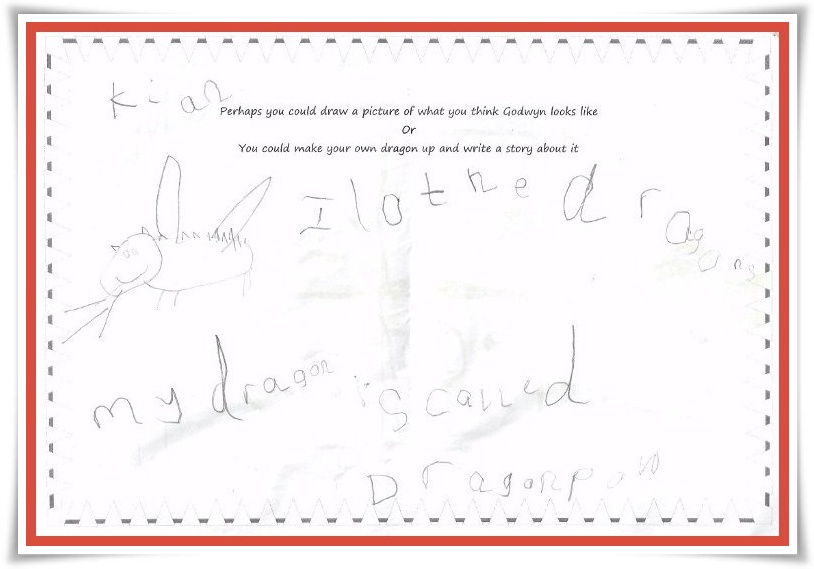 kian
Perhaps you could draw a picture of what you think Godwyn looks like
Or
You could make your own dragon up and write a story about it
I lo the dragons
my dragon is called
Dragonpow